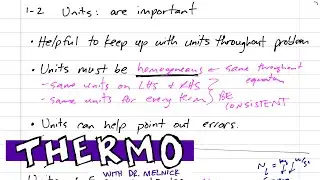 1-2 Units: are important
• Helpful to keep up with units throughout problem
• Units must be homogeneous ← same throughout equation
- same units on LHS & RHS
- same units for every term } BE CONSISTENT
• Units can help point out errors.
THERMO
WITH DR. MELNICK